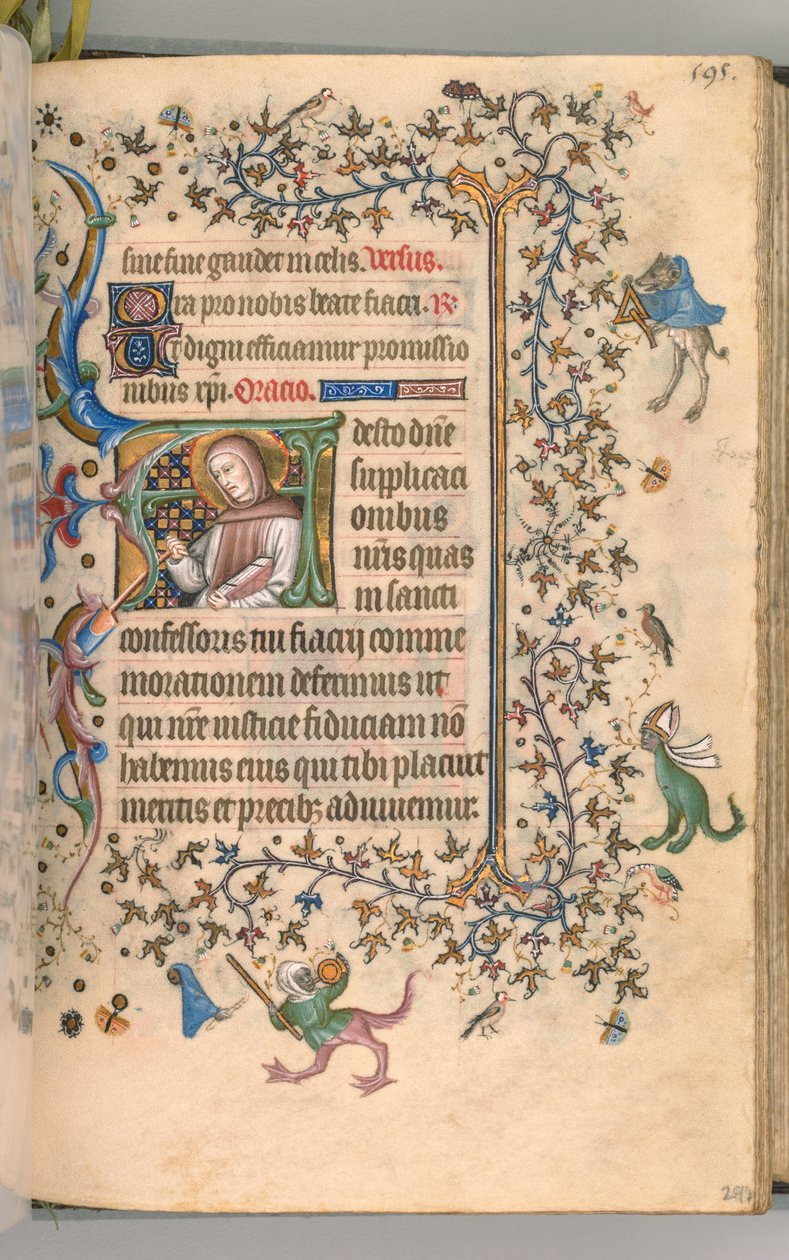 595.
sine fine gaudet in celis. Versus.
Ora pro nobis beate fiacri. R̃.
Et digni efficiamur promissio
nibus xp̃i. Oracio.
Adesto dñe
supplicaci
onibus
nr̃is quas
in sancti
confessoris tui fiacrij comme
morationem deferimus ut
qui nr̃e iusticie fiduciam nõ
habemus eius qui tibi placuit
meritis et precibꝫ adiuuemur.